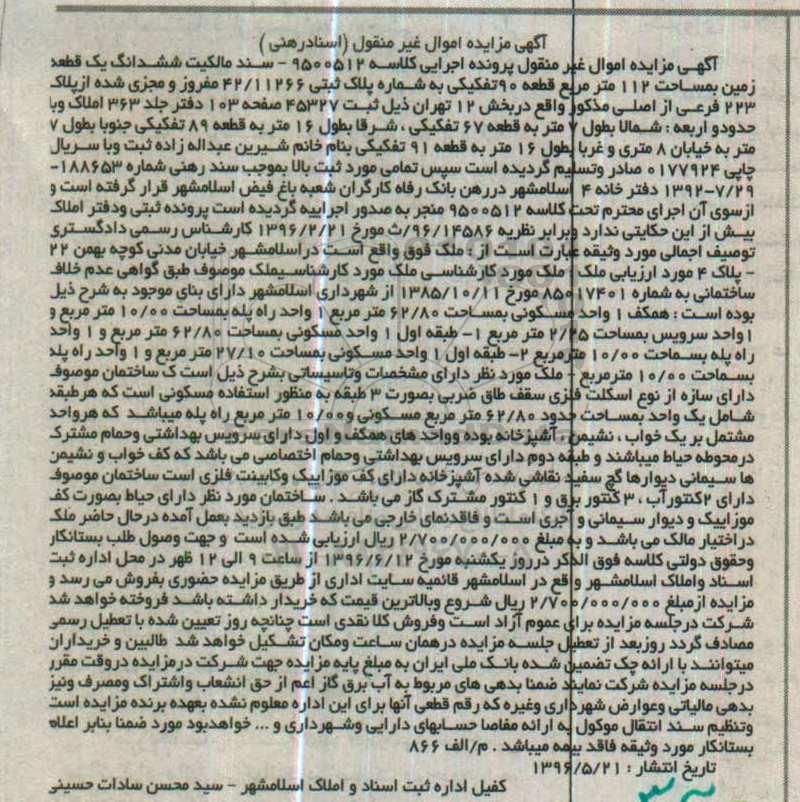 آگهی مزایده اموال غیر منقول (اسنادرهنی)
آگهی مزایده اموال غیر منقول پرونده اجرایی کلاسه ۹۵۰۰۵۱۲ - سند مالکیت ششدانگ یک قطعه
زمین بمساحت ۱۱۲ متر مربع قطعه ۹۰تفکیکی به شماره پلاک ثبتی ۴۲/۱۱۲۶۶ مفروز و مجزی شده ازپلاک
۲۲۳ فرعی از اصلی مذکور واقع دربخش ۱۲ تهران ذیل ثبت ۴۵۳۲۷ صفحه ۱۰۳ دفتر جلد ۳۶۳ املاک وبا
حدودو اربعه : شمالا بطول ۷ متر به قطعه ۶۷ تفکیکی ، شرقا بطول ۱۶ متر به قطعه ۸۹ تفکیکی جنوبا بطول ۷
متر به خیابان ۸ متری و غربا بطول ۱۶ متر به قطعه ۹۱ تفکیکی بنام خانم شیرین عبداله زاده ثبت وبا سریال
چاپی ۰۱۷۷۹۲۴ صادر وتسلیم گردیده است سپس تمامی مورد ثبت بالا بموجب سند رهنی شماره ۱۸۸۶۵۳-
۱۳۹۲-۷/۲۹ دفتر خانه ۴ اسلامشهر دررهن بانک رفاه کارگران شعبه باغ فیض اسلامشهر قرار گرفته است و
ازسوی آن اجرای محترم تحت کلاسه ۹۵۰۰۵۱۲ منجر به صدور اجراییه گردیده است پرونده ثبتی ودفتر املاک
بیش از این حکایتی ندارد وبرابر نظریه ۹۶/۱۴۵۸۶/ث مورخ ۱۳۹۶/۲/۲۱ کارشناس رسمی دادگستری
توصیف اجمالی مورد وثیقه عبارت است از : ملک فوق واقع است دراسلامشهر خیابان مدنی کوچه بهمن ۲۲
- پلاک ۴ مورد ارزیابی ملک : ملک مورد کارشناسی ملک مورد کارشناسیملک موصوف طبق گواهی عدم خلاف
ساختمانی به شماره ۸۵۰۱۷۴۰۱ مورخ ۱۳۸۵/۱۰/۱۱ از شهرداری اسلامشهر دارای بنای موجود به شرح ذیل
بوده است : همکف ۱ واحد مسکونی بمساحت ۶۲/۸۰ متر مربع ۱ واحد راه پله بمساحت ۱۰/۰۰ متر مربع و
۱واحد سرویس بمساحت ۲/۲۵ متر مربع ۱- طبقه اول ۱ واحد مسکونی بمساحت ۶۲/۸۰ متر مربع و ۱ واحد
راه پله بسماحت ۱۰/۰۰ مترمربع ۲- طبقه اول ۱ واحد مسکونی بمساحت ۲۷/۱۰ متر مربع و ۱ واحد راه پله
بسماحت ۱۰/۰۰ مترمربع - ملک مورد نظر دارای مشخصات وتاسیساتی بشرح ذیل است ک ساختمان موصوف
دارای سازه از نوع اسکلت فلزی سقف طاق ضربی بصورت ۳ طبقه به منظور استفاده مسکونی است که هرطبقه
شامل یک واحد بمساحت حدود ۶۲/۸۰ متر مربع مسکونی و۱۰/۰۰ متر مربع راه پله میباشد که هرواحد
مشتمل بر یک خواب ، نشیمن ، آشپزخانه بوده وواحد های همکف و اول دارای سرویس بهداشتی وحمام مشترک
درمحوطه حیاط میباشند و طبقه دوم دارای سرویس بهداشتی وحمام اختصاصی می باشد که کف خواب و نشیمن
ها سیمانی دیوارها گچ سفید نقاشی شده آشپزخانه دارای کف موزاییک وکابینت فلزی است ساختمان موصوف
دارای ۲کنتورآب ، ۳ کنتور برق و ۱ کنتور مشترک گاز می باشد . ساختمان مورد نظر دارای حیاط بصورت کف
موزاییک و دیوار سیمانی و آجری است و فاقدنمای خارجی می باشد طبق بازدید بعمل آمده درحال حاضر ملک
دراختیار مالک می باشد و به مبلغ ۲/۷۰۰/۰۰۰/۰۰۰ ریال ارزیابی شده است و جهت وصول طلب بستانکار
وحقوق دولتی کلاسه فوق الذکر درروز یکشنبه مورخ ۱۳۹۶/۶/۱۲ از ساعت ۹ الی ۱۲ ظهر در محل اداره ثبت
اسناد واملاک اسلامشهر واقع در اسلامشهر قائمیه سایت اداری از طریق مزایده حضوری بفروش می رسد و
مزایده ازمبلغ ۲/۷۰۰/۰۰۰/۰۰۰ ریال شروع وبالاترین قیمت که خریدار داشته باشد فروخته خواهد شد
شرکت درجلسه مزایده برای عموم آزاد است وفروش کلا نقدی است چنانچه روز تعیین شده با تعطیل رسمی
مصادف گردد روزبعد از تعطیل جلسه مزایده درهمان ساعت ومکان تشکیل خواهد شد طالبین و خریداران
میتوانند با ارائه چک تضمین شده بانک ملی ایران به مبلغ پایه مزایده جهت شرکت درمزایده دروقت مقرر
درجلسه مزایده شرکت نمایند ضمنا بدهی های مربوط به آب برق گاز اعم از حق انشعاب واشتراک ومصرف ونیز
بدهی مالیاتی وعوارض شهرداری وغیره که رقم قطعی آنها برای این اداره معلوم نشده بعهده برنده مزایده است
وتنظیم سند انتقال موکول به ارائه مفاصا حسابهای دارایی وشهرداری و ... خواهدبود مورد ضمنا بنابر اعلام
بستانکار مورد وثیقه فاقد بیمه میباشد . م/الف ۸۶۶
تاریخ انتشار : ۱۳۹۶/۵/۲۱
کفیل اداره ثبت اسناد و املاک اسلامشهر - سید محسن سادات حسینی